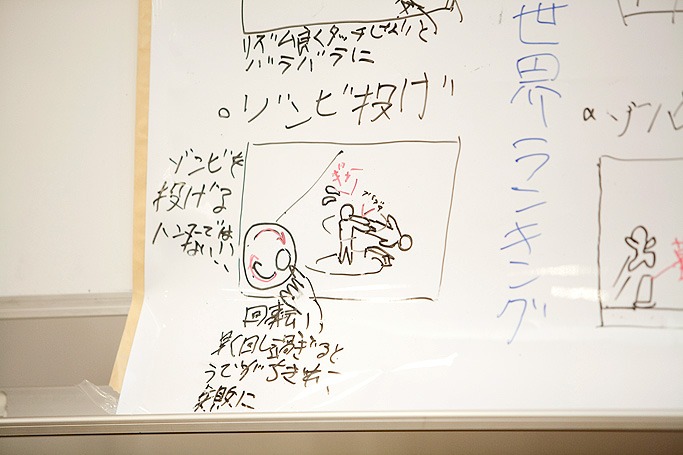 リズム良くタッチしないと
バラバラに
ゾンビ投げ
ゾンビを
投げる
ハンマーでは
ない!!
ギャー
回転!!
早く回し過ぎると
うでがちぎれ、
失敗に
世界ランキング
α ゾンビ